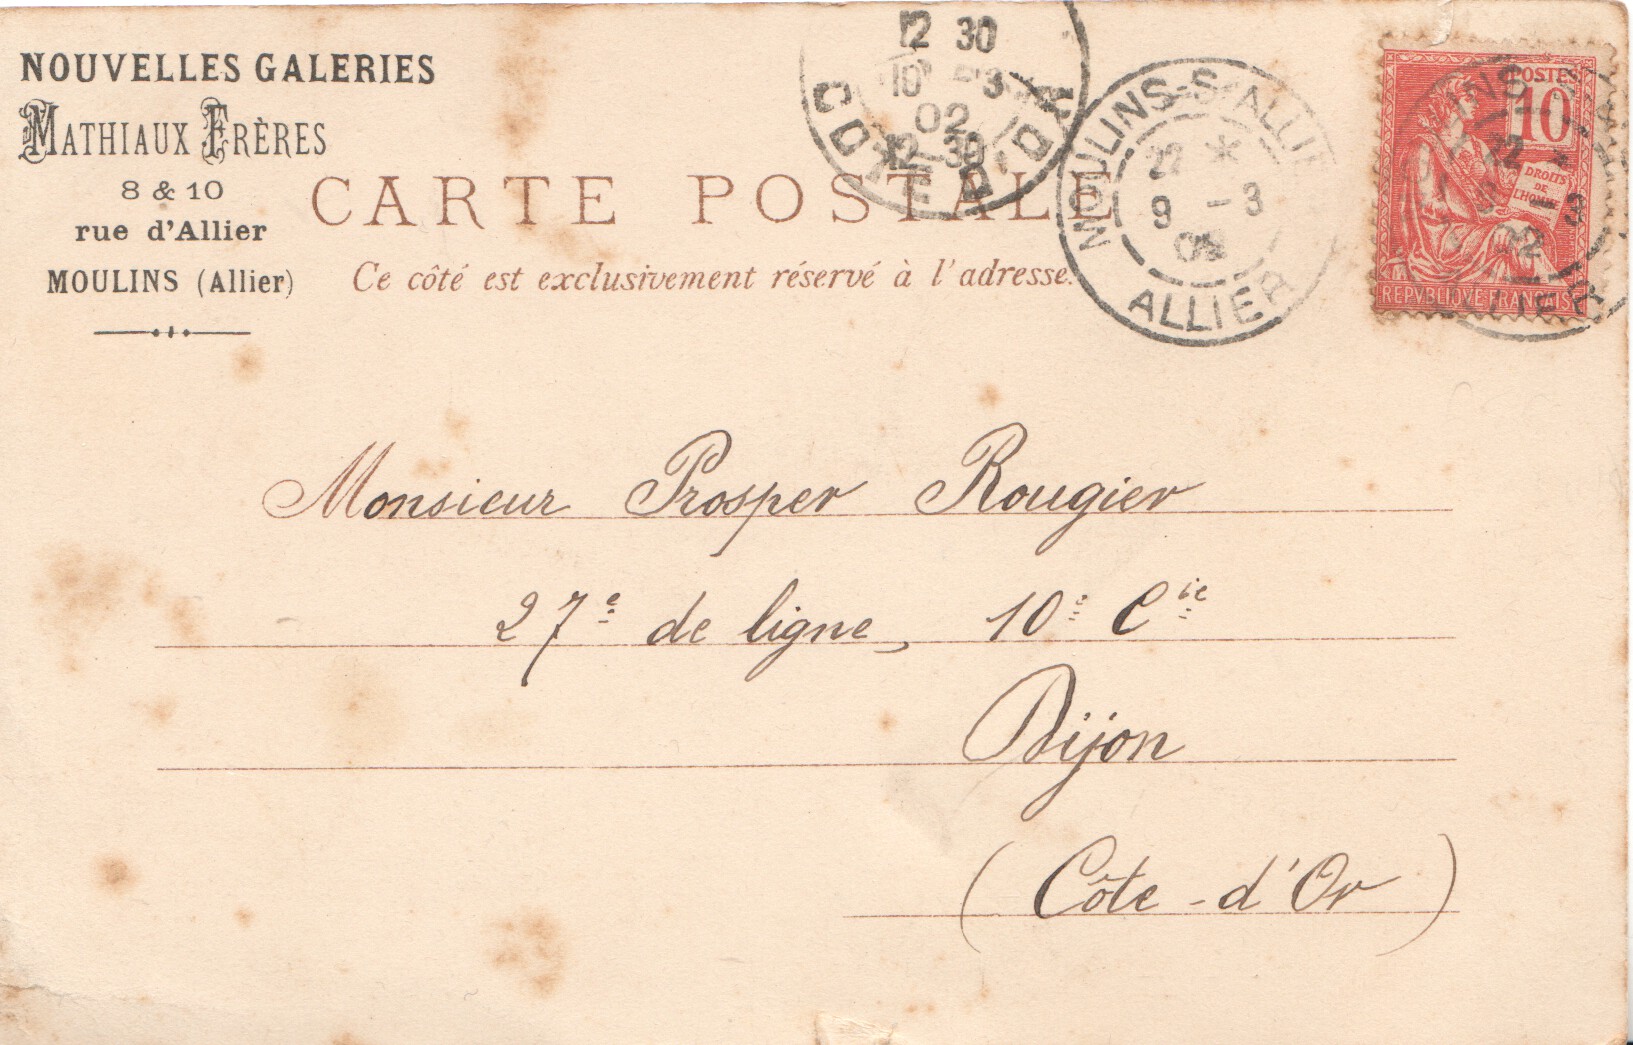 NOUVELLES GALERIES
MATHIAUX FRÈRES
8 & 10
rue d'Allier
MOULINS (Allier)
CARTE POSTALE
Ce côté est exclusivement réservé à l'adresse.
12 30
10 -3
02
12-30
COTE-D'OR
MOULINS-S-ALLIE
22 *
9 -3
02
ALLIER
POSTES
10
DROITS
DE
L'HOMME
REPVBLIQVE FRANCAISE
INS
12 *
3
02
ALLIER
Monsieur Prosper Rougier
27e de ligne, 10e Cie
Dijon
(Côte-d'Or)